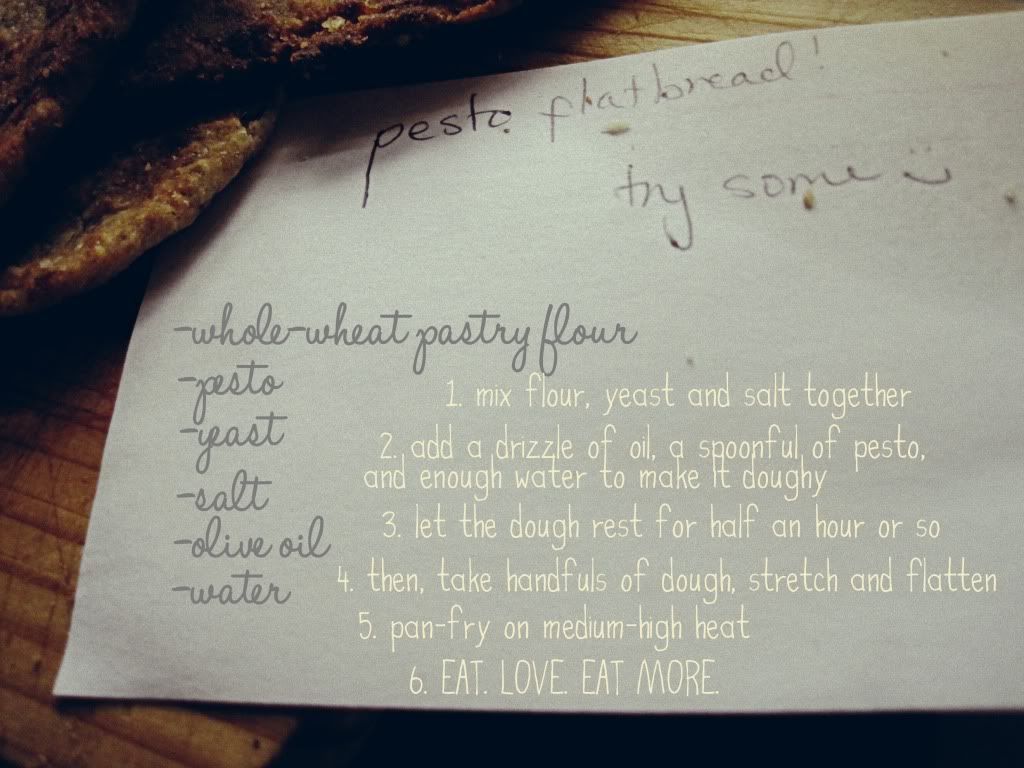 pesto flatbread!
try some :)
-whole-wheat pastry flour
-pesto
-yeast
-salt
-olive oil
-water
1. mix flour, yeast and salt together
2. add a drizzle of oil, a spoonful of pesto,
and enough water to make it doughy
3. let the dough rest for half an hour or so
4. then, take handfuls of dough, stretch and flatten
5. pan-fry on medium-high heat
6. EAT. LOVE. EAT MORE.